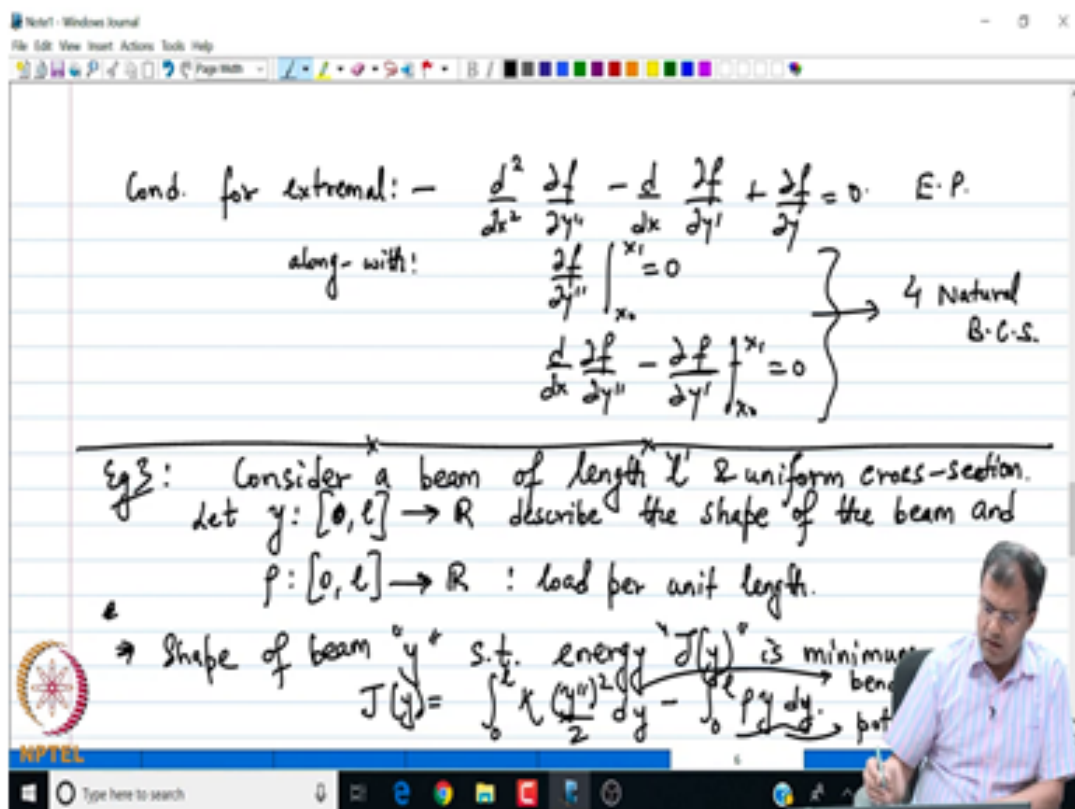 Note1 - Windows Journal
File Edit View Insert Actions Tools Help
Page Width
B I
Cond. for extremal: - d²/dx² ∂f/∂y" - d/dx ∂f/∂y' + ∂f/∂y = 0. E.P.
along-with: ∂f/∂y" |_{x₀}^{x₁} = 0
4 Natural
B.C.S.
d/dx ∂f/∂y" - ∂f/∂y' |_{x₀}^{x₁} = 0
Eg3: Consider a beam of length 'l' & uniform cross-section.
Let y: [0, l] → R describe the shape of the beam and
ρ: [0, l] → R : load per unit length.
⇒ Shape of beam "y" s.t. energy "J(y)" is minimum
J(y) = ∫₀^l K (y")²/2 dy - ∫₀^l ρ y dy.
6
NPTEL
Type here to search